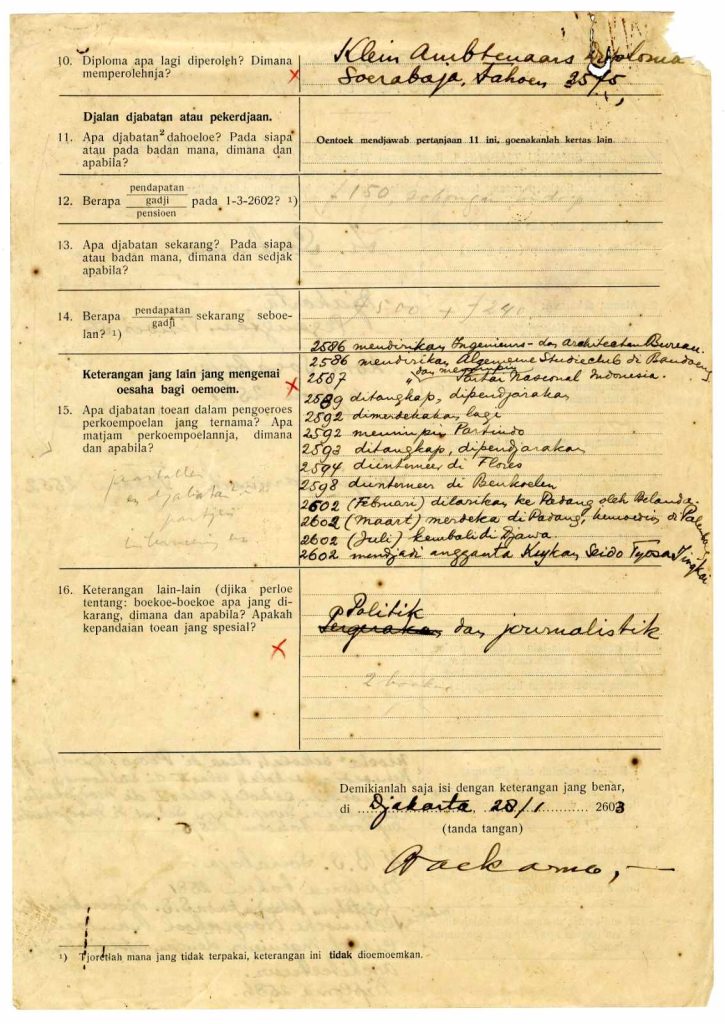 10. Diploma apa lagi diperoleh? Dimana
memperolehnja?
Klein Ambtenaars Diploma
Soerabaja, tahoen 2575,
Djalan djabatan atau pekerdjaan.
11. Apa djabatan² dahoeloe? Pada siapa
atau pada badan mana, dimana dan
apabila?
Oentoek mendjawab pertanjaan 11 ini, goenakanlah kertas lain
12. Berapa pendapatan gadji pensioen pada 1-3-2602? ¹)
f 150
13. Apa djabatan sekarang? Pada siapa
atau badan mana, dimana dan sedjak
apabila?
14. Berapa pendapatan gadji sekarang seboe-
lan? ¹)
f 500 + f 240
Keterangan jang lain jang mengenai
oesaha bagi oemoem.
15. Apa djabatan toean dalam pengoeroes
perkoempoelan jang ternama? Apa
matjam perkoempoelannja, dimana
dan apabila?
2586 mendirikan Ingenieurs- dan Architecten Bureau.
2586 mendirikan Algemeene Studieclub di Bandoeng
2587 " dan memimpin Partai Nasional Indonesia.
2589 ditangkap, dipendjarakan
2592 dimerdekakan lagi
2592 memimpin Partindo
2593 ditangkap, dipendjarakan
2594 diinterneer di Flores
2598 diinterneer di Benkoelen
2602 (Februari) dilarikan ke Padang oleh Belanda.
2602 (Maart) merdeka di Padang, kemoedian di Palembang
2602 (Juli) kembali di Djawa
2602 mendjadi anggauta Kyukan Seido Tyosa Iinkai
16. Keterangan lain-lain (djika perloe
tentang: boekoe-boekoe apa jang di-
karang, dimana dan apabila? Apakah
kepandaian toean jang spesial?
Politik
Pergerakan dan journalistik
Demikianlah saja isi dengan keterangan jang benar,
di Djakarta, 28/1 2603
(tanda tangan)
Soekarno,—
¹) Tjoretlah mana jang tidak terpakai, keterangan ini tidak dioemoemkan.